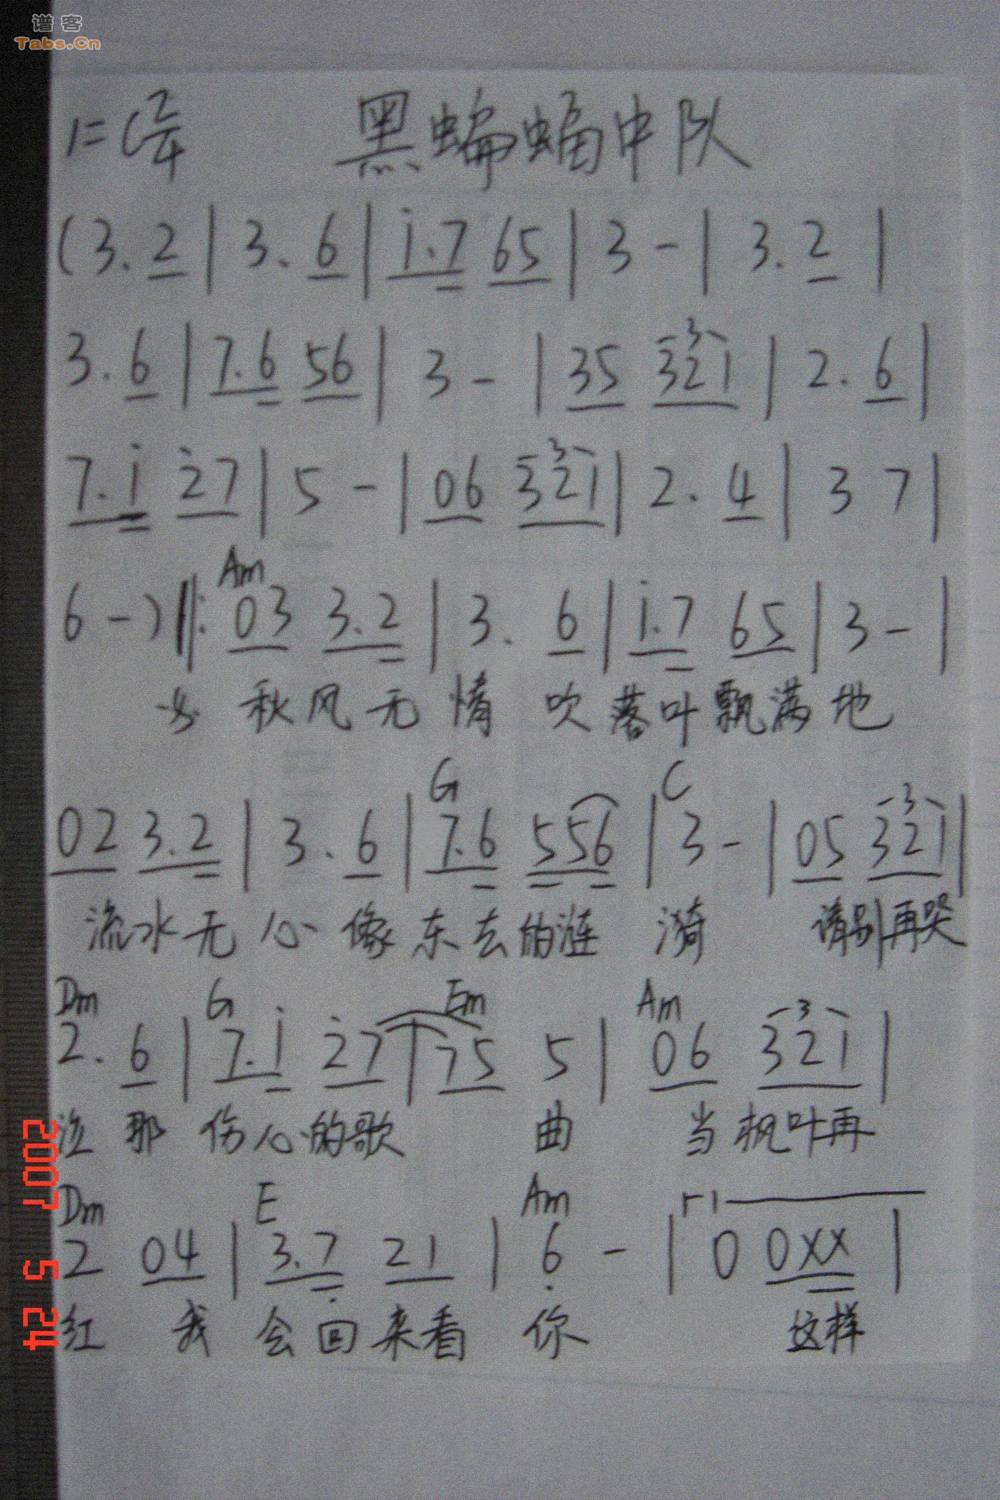 谱客
Tabs.Cn
1=C 2/4 黑蝙蝠中队
(3.2|3.6|i.7 65|3-|3.2|
3.6|7.6 56|3-|35 3 321|2.6|
7.i 27|5-|06 3 321|2.4|3 7|
Am
6-)‖: 03 3.2|3. 6|i.7 65|3-|
秋风无情 吹落叶飘满地
G C 3
02 3.2|3.6|7.6 556|3-|05 321|
流水无心像东去的涟漪 请别再哭
Dm G Em Am 3
2.6|7.i 27|75 5|06 321|
泣那伤心的歌 曲 当枫叶再
Dm E Am 1
2 04|3.7 21|6-|0 0XX|
红 我会回来看你 这样
2007 5 24